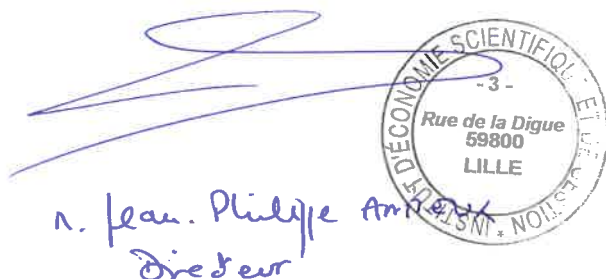 INSTITUT D'ÉCONOMIE SCIENTIFIQUE ET DE GESTION *
- 3 -
Rue de la Digue
59800
LILLE
Jean. Philippe
Directeur